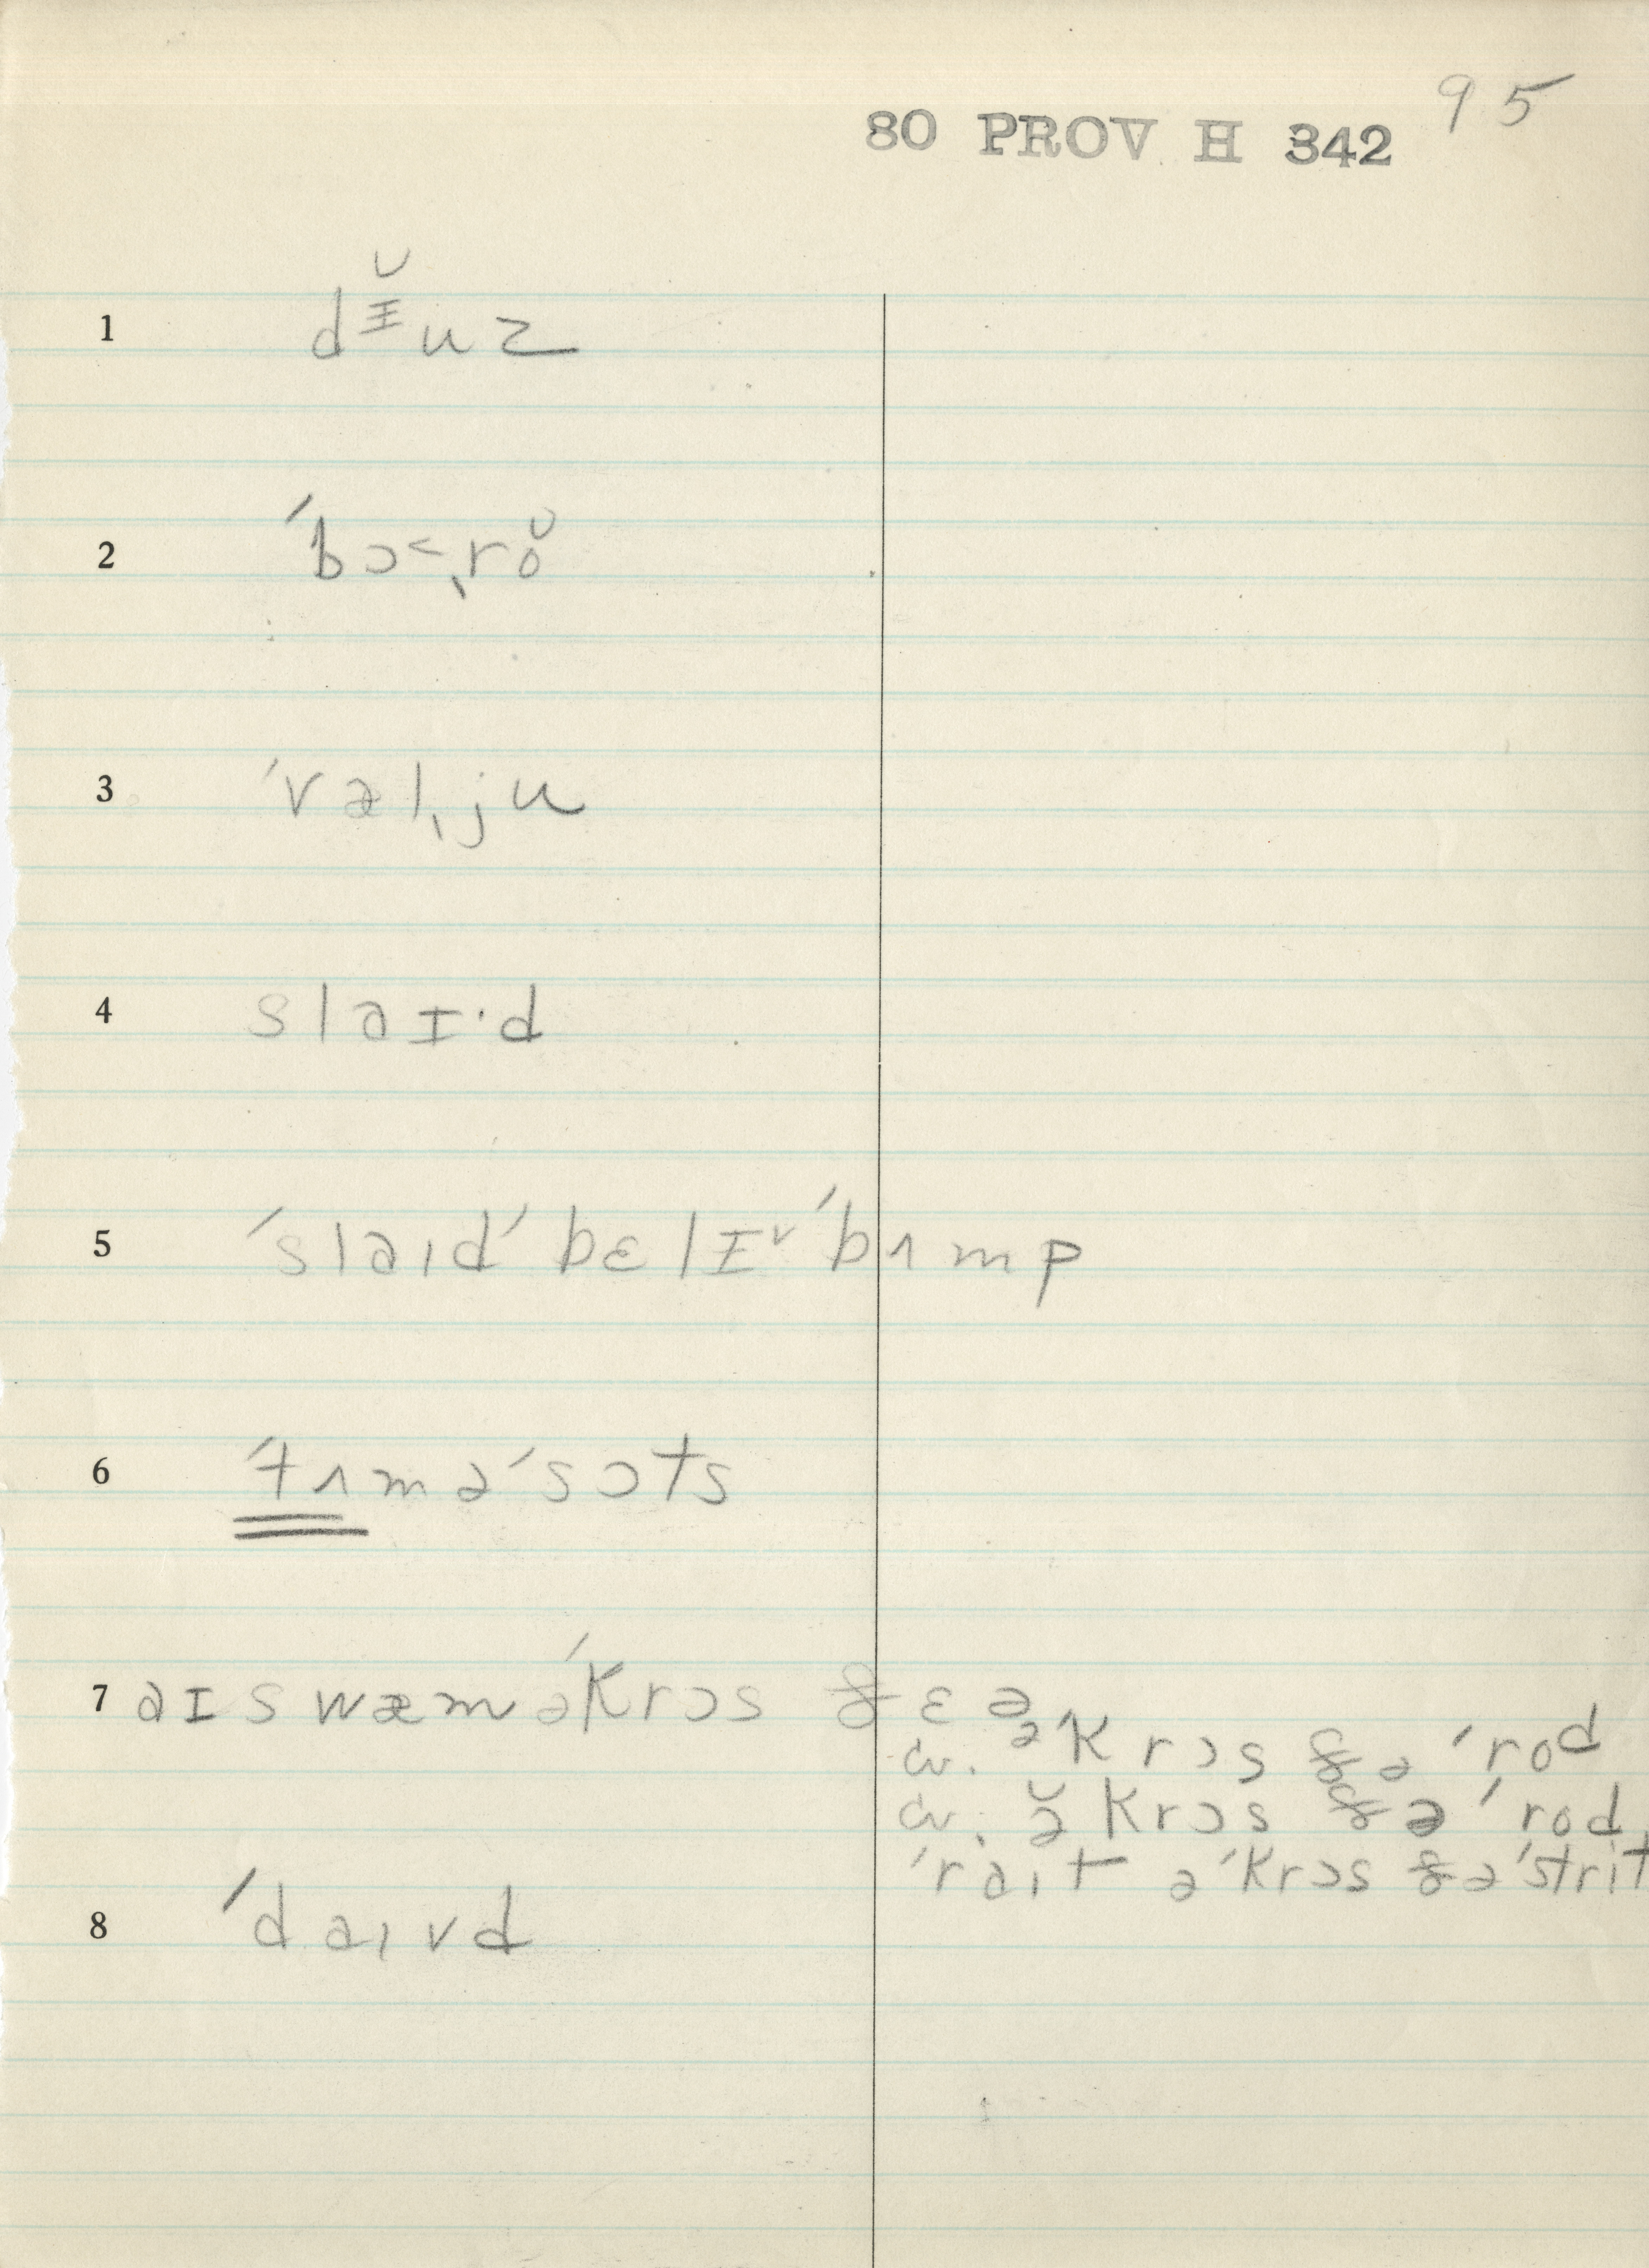 95
80 PROV H 342
1 dɪ̵̆uz
2 ˈbɔ˂ˌrŏ
3 ˈvælˌju
4 slaɪ·d
5 ˈslaɪdˈbɛlɪˇˈbʌmp
6 ˈtʌməˈsɔts
7 aɪ swæm əˈkrɔs ðɛə
əˈkrɔs ðə ˈrod
ə̆krɔs ðə ˈrod
ˈraɪt əˈkrɔs ðəˈstrit
8 ˈdaɪvd